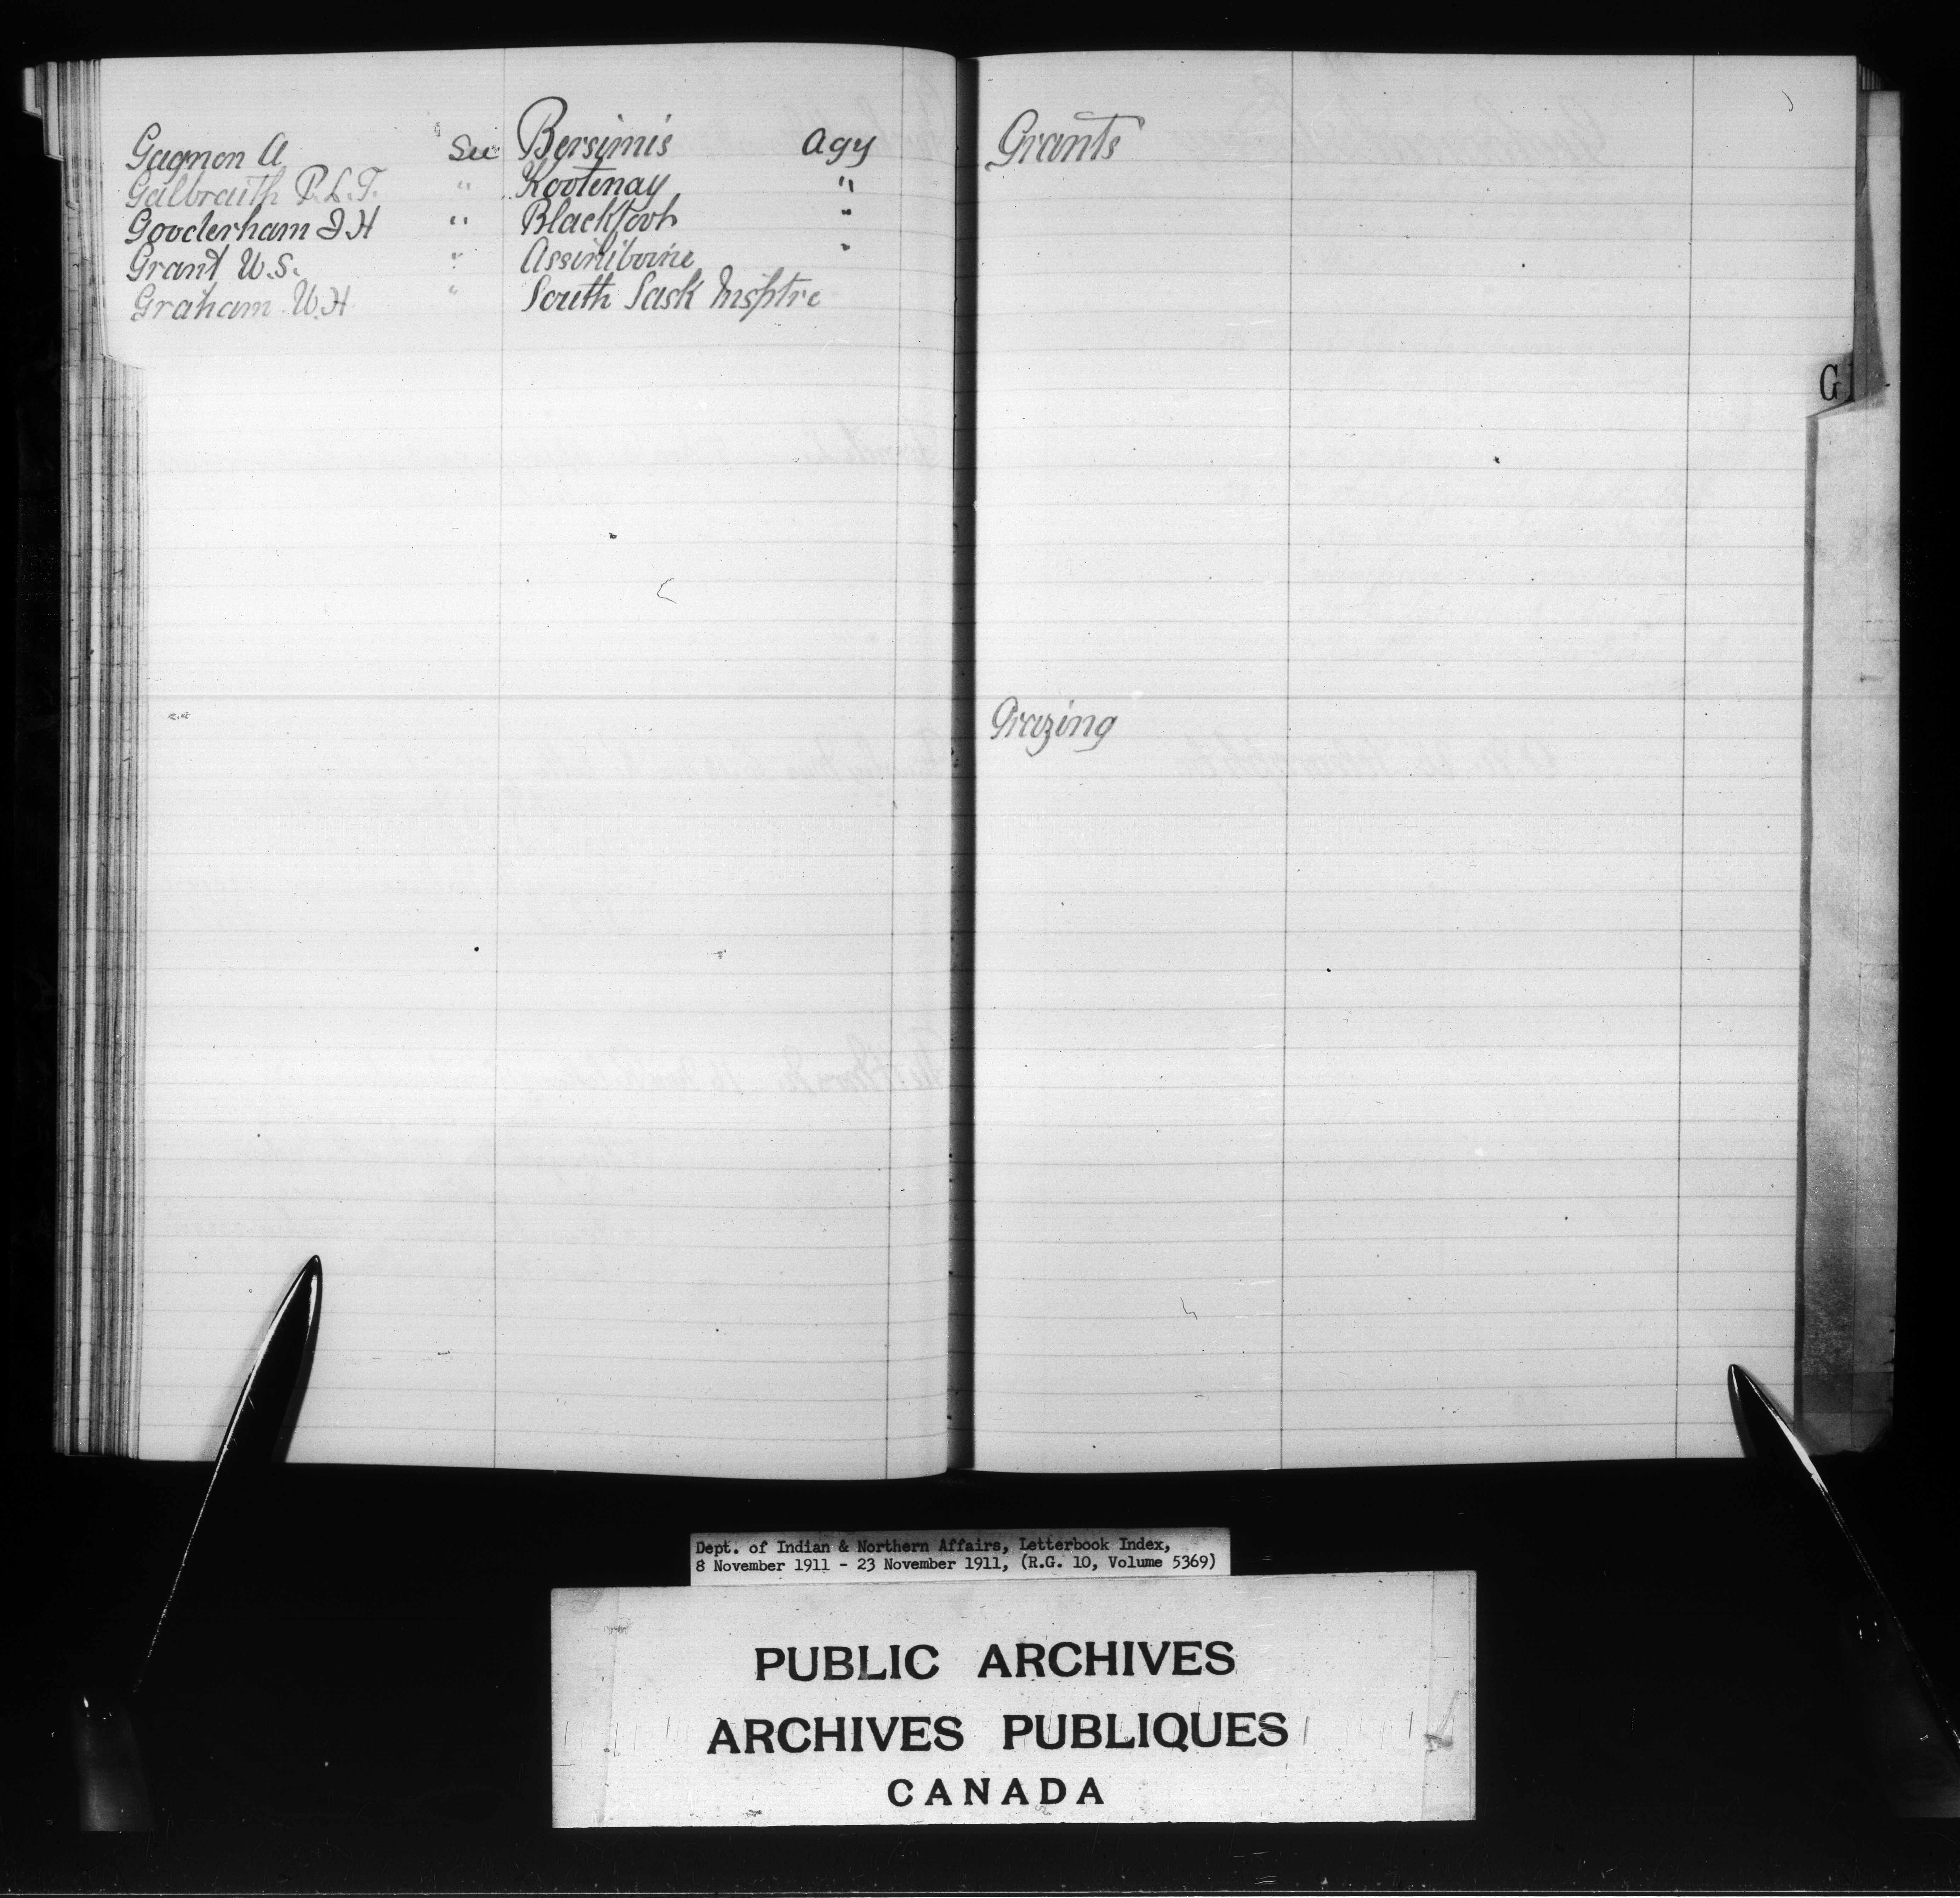 Gagnon A See Bersimis Agy
Galbraith R.L.T. " Kootenay "
Gooderham J H " Blackfoot "
Grant W.S. " Assiniboine "
Graham W.H. " South Sask Insptre
Grants
Grazing
G
Dept. of Indian & Northern Affairs, Letterbook Index,
8 November 1911 - 23 November 1911, (R.G. 10, Volume 5369)
PUBLIC ARCHIVES
ARCHIVES PUBLIQUES
CANADA